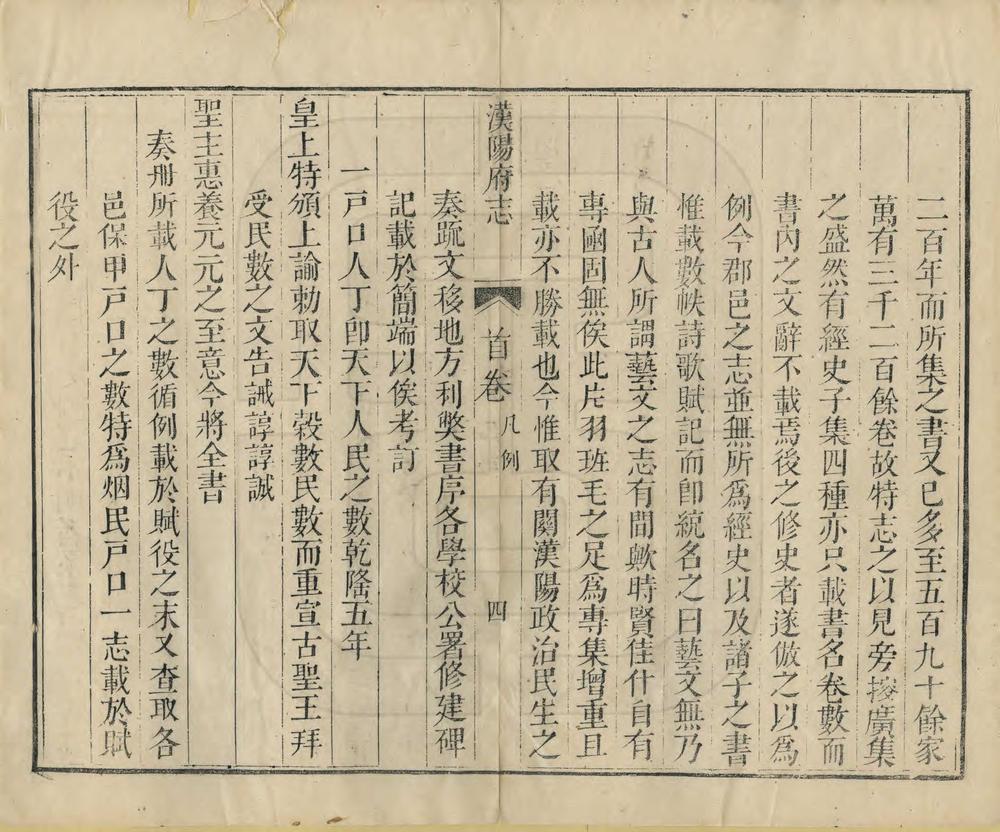 二百年而所集之書又已多至五百九十餘家
萬有三千二百餘卷故特志之以見旁搜廣集
之盛然有經史子集四種亦只載書名卷數而
書內之文辭不載焉後之修史者遂倣之以爲
例今郡邑之志並無所爲經史以及諸子之書
惟載數帙詩歌賦記而卽統名之曰藝文無乃
與古人所謂藝文之志有間歟時賢佳什自有
專函固無俟此片羽班毛之足爲專集增重且
載亦不勝載也今惟取有關漢陽政治民生之
漢陽府志 首卷 凡例 四
奏疏文移地方利獘書序各學校公署修建碑
記載於簡端以俟考訂
一戸口人丁卽天下人民之數乾隆五年
皇上特頒上諭勅取天下穀數民數而重宣古聖王拜
受民數之文告誡諄諄誠
聖主惠養元元之至意今將全書
奏册所載人丁之數循例載於賦役之末又查取各
邑保甲戸口之數特爲烟民戸口一志載於賦
役之外